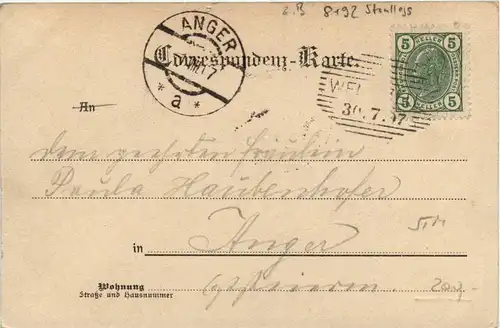 z.B 8192 Stralleg
ANGER
* a *
Correspondenz-Karte.
5 HELLER 5
5 HELLER 5
WEI
30.7.07
An
dem geehrten Fräulein
Paula Haubenhofer
in Anger
Wohnung
Straße und Hausnummer